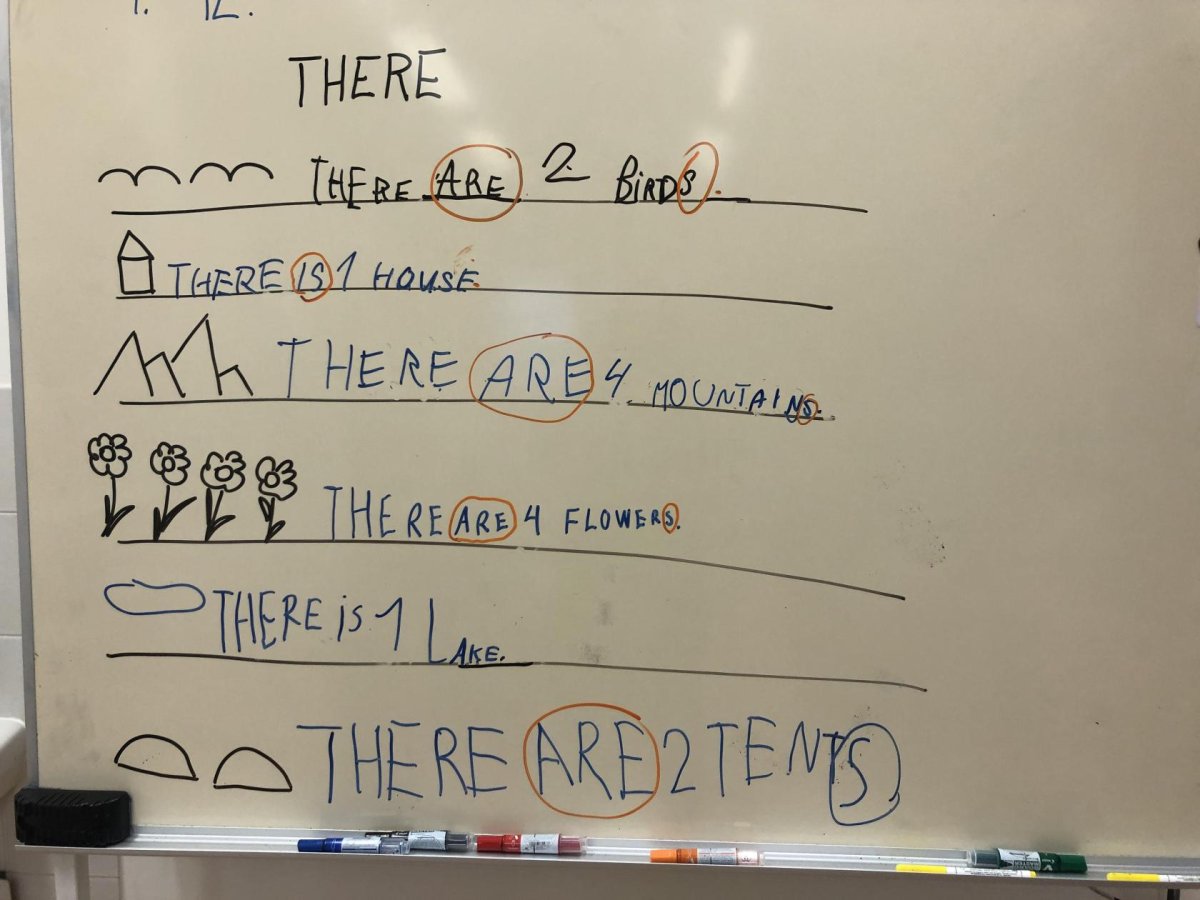 THERE
THERE ARE 2 BIRDS.
THERE IS 1 HOUSE.
THERE ARE 4 MOUNTAINS.
THERE ARE 4 FLOWERS.
THERE is 1 LAKE.
THERE ARE 2 TENTS